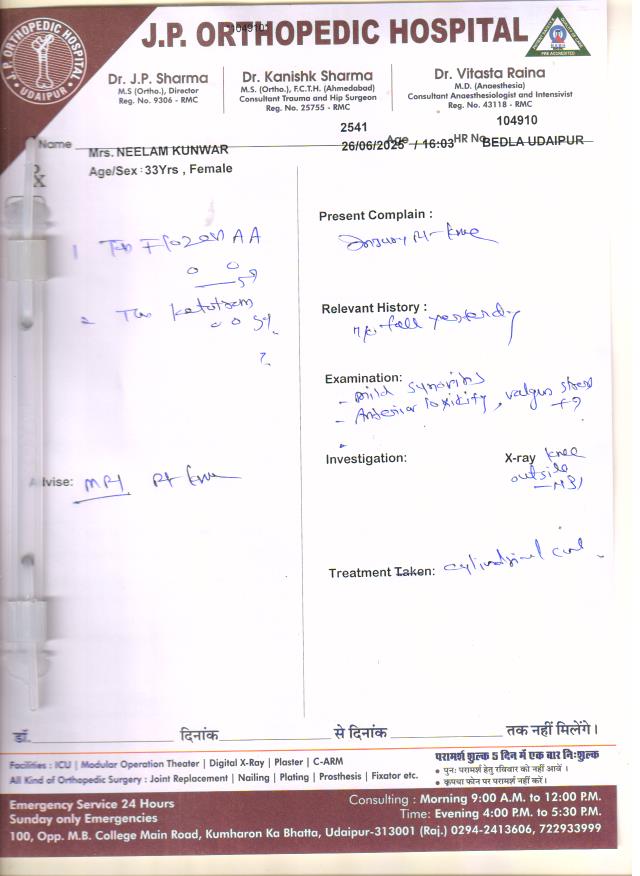 J.P. ORTHOPEDIC HOSPITAL
UDAIPUR
104910
J.P. ORTHOPEDIC HOSPITAL
PRE ACCREDITED
Dr. J.P. Sharma
M.S (Ortho.), Director
Reg. No. 9306 - RMC
Dr. Kanishk Sharma
M.S. (Ortho.), F.C.T.H. (Ahmedabad)
Consultant Trauma and Hip Surgeon
Reg. No. 25755 - RMC
Dr. Vitasta Raina
M.D. (Anaesthesia)
Consultant Anaesthesiologist and Intensivist
Reg. No. 43118 - RMC
2541
104910
Name Mrs. NEELAM KUNWAR
26/06/2025 / 16:03
Age
HR No
BEDLA UDAIPUR
Rx
Age/Sex : 33Yrs , Female
Present Complain :
Injury Rt- knee
1 Tab Flozen AA
2 Tab Ketotram
Relevant History :
fall yesterday
Examination:
- mild synovitis
- Anterior , valgus stress
+?
Investigation:
X-ray knee
outside
Advise: MRI Rt knee
Treatment Taken: cylindrical cast
डॉ. दिनांक से दिनांक तक नहीं मिलेंगे।
Facilities : ICU | Modular Operation Theater | Digital X-Ray | Plaster | C-ARM
All Kind of Orthopedic Surgery : Joint Replacement | Nailing | Plating | Prosthesis | Fixator etc.
परामर्श शुल्क 5 दिन में एक बार निःशुल्क
• पुनः परामर्श हेतु रविवार को नहीं आवें ।
• कृपया फोन पर परामर्श नहीं करें।
Emergency Service 24 Hours
Sunday only Emergencies
Consulting : Morning 9:00 A.M. to 12:00 P.M.
Time: Evening 4:00 P.M. to 5:30 P.M.
100, Opp. M.B. College Main Road, Kumharon Ka Bhatta, Udaipur-313001 (Raj.) 0294-2413606, 722933999